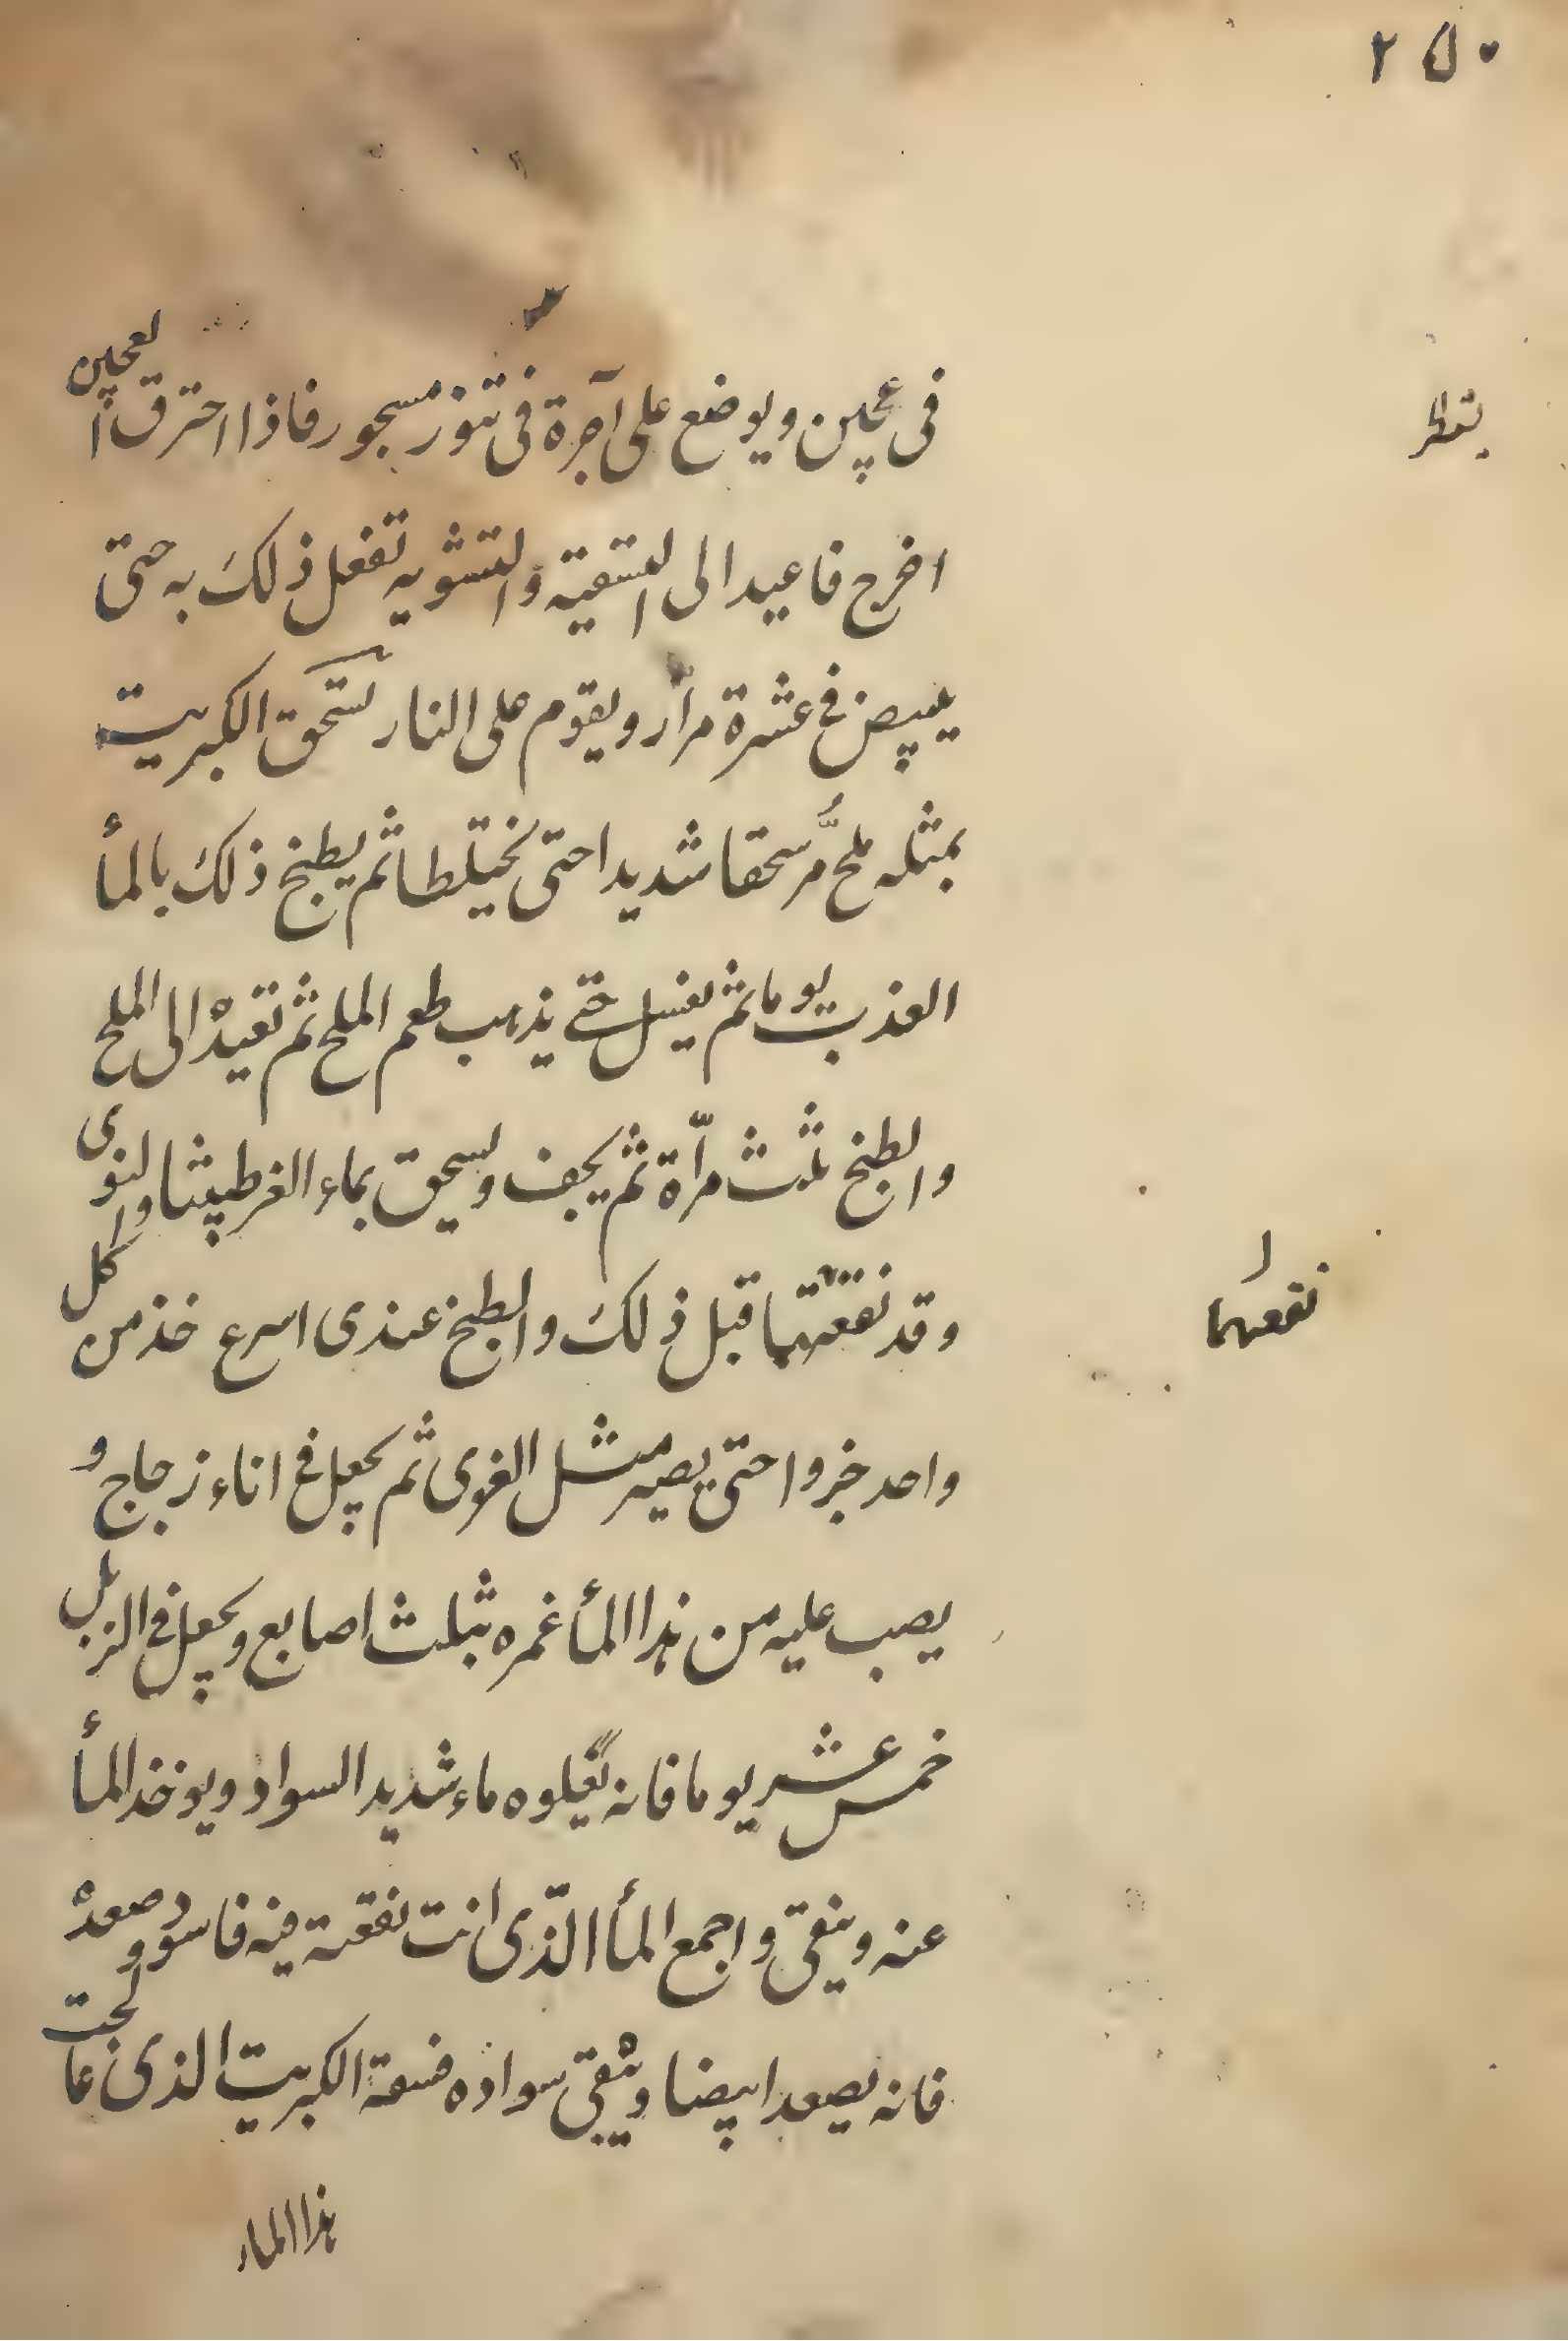 ٢٥٠
فى عجين ويوضع على آجرة فى تنور مسجور فاذا احترق العجين
ينظر
اخرج فاعيد الى التسقية والتشويه تفعل ذلك به حتى
يبيض فى عشرة مرار ويقوم على النار تسحق الكبريت
بمثله ملح مُرّ سحقا شديدا حتى يختلطا ثم يطبخ ذلك بالمأ
العذب يوما ثم يغسل حتى يذهب طعم الملح ثم تعيده الى الملح
والطبخ ثلث مرّاة ثم يجف ويسحق بماء الغرطيثا والنوى
وقد نقعتهما قبل ذلك والطبخ عندى اسرع خذ من كل
ا
نقعهما
واحد جزوا حتى يصير مثل الغرى ثم يجعل فى اناء زجاج و
يصب عليه من هذا المأ غمره بثلث اصابع ويجعل فى الزبل
خمس عشر يوما فانه يعلوه ماء شديد السواد ويوخذ المأ
عنه وينقى واجمع المأ الّذى انت نقعته فيه فاسود وصعده
فانه يصعد ابيضا ويبقى سواده صفة الكبريت الذى عالجت
هذا الماء